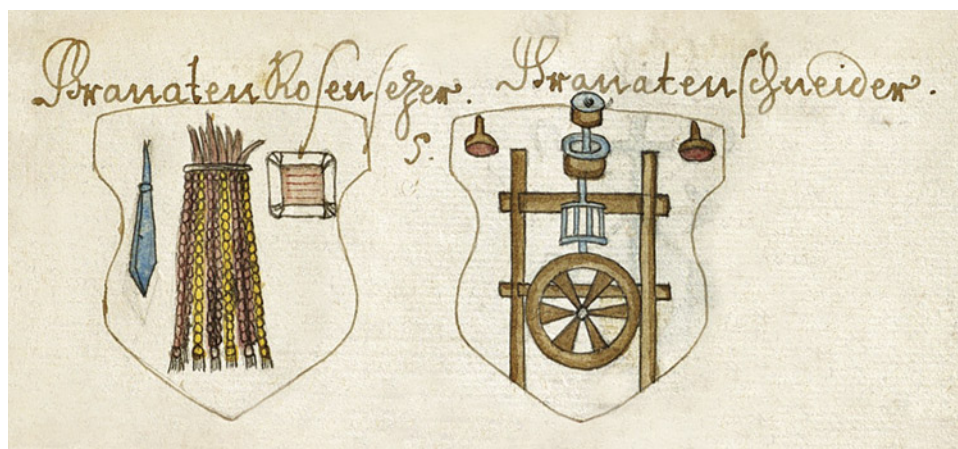 Granaten Rosensetzer.
Granatenschneider.
S.